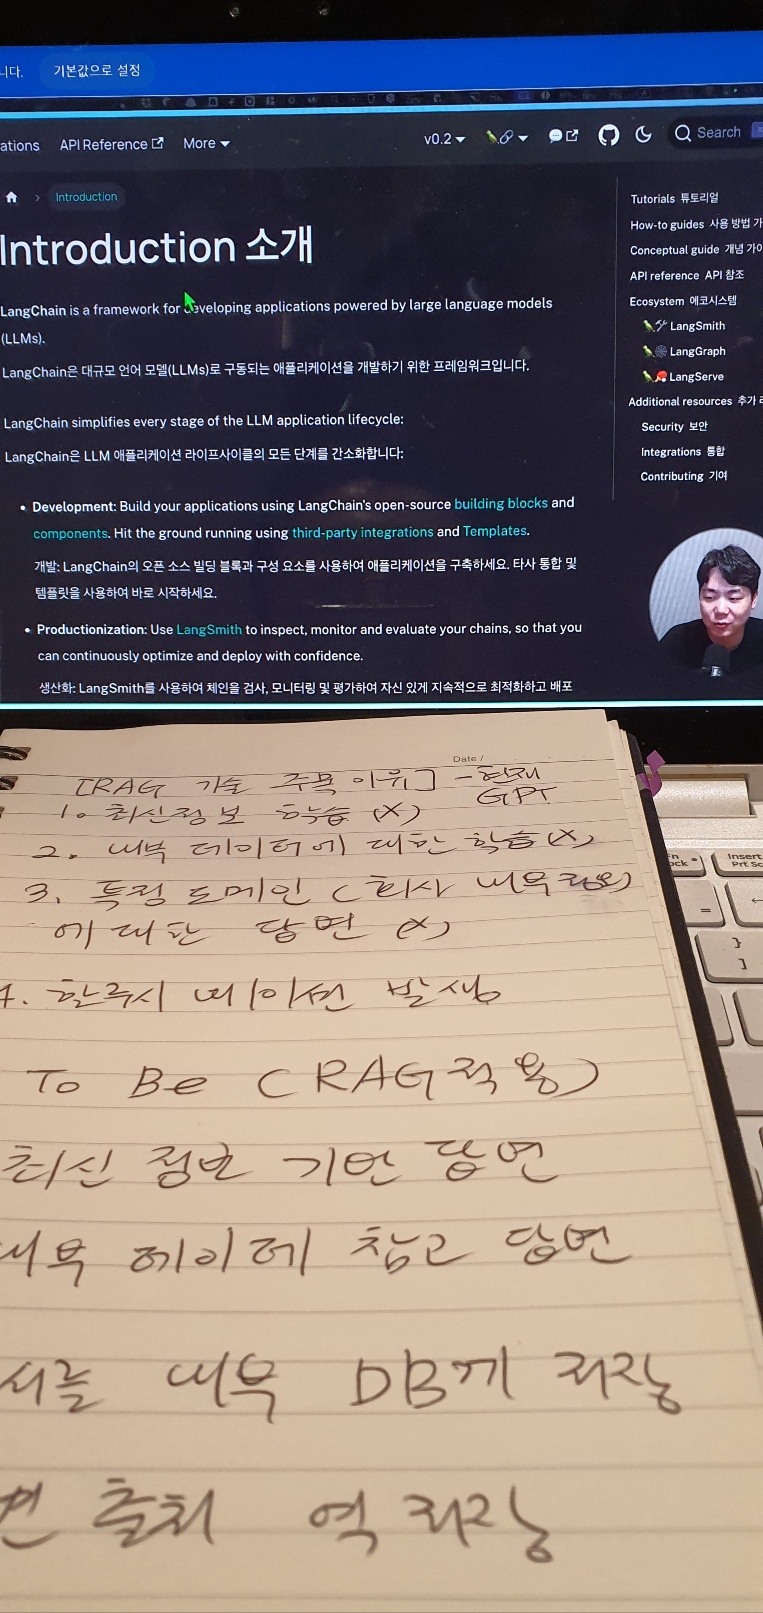 니다. 기본값으로 설정
ations API Reference More v0.2 Search
Introduction
Introduction 소개
LangChain is a framework for developing applications powered by large language models
(LLMs).
LangChain은 대규모 언어 모델(LLMs)로 구동되는 애플리케이션을 개발하기 위한 프레임워크입니다.
LangChain simplifies every stage of the LLM application lifecycle:
LangChain은 LLM 애플리케이션 라이프사이클의 모든 단계를 간소화합니다:
• Development: Build your applications using LangChain's open-source building blocks and
components. Hit the ground running using third-party integrations and Templates.
개발: LangChain의 오픈 소스 빌딩 블록과 구성 요소를 사용하여 애플리케이션을 구축하세요. 타사 통합 및
템플릿을 사용하여 바로 시작하세요.
• Productionization: Use LangSmith to inspect, monitor and evaluate your chains, so that you
can continuously optimize and deploy with confidence.
생산화: LangSmith를 사용하여 체인을 검사, 모니터링 및 평가하여 자신 있게 지속적으로 최적화하고 배포
Tutorials 튜토리얼
How-to guides 사용 방법 가
Conceptual guide 개념 가이
API reference API 참조
Ecosystem 에코시스템
LangSmith
LangGraph
LangServe
Additional resources 추가
Security 보안
Integrations 통합
Contributing 기여
Date /
[RAG 기술 주목 이유] - 현재
GPT
1. 최신정보 학습(X)
2. 내부 데이터에 대한 학습(X)
3. 특정 도메인 (회사 내부
에 대한 답변 (X)
4. 할루시네이션 발생
To Be (RAG적용)
최신 정보 기반 답변
내부 데이터 참고 답변
서를 내부 DB에 저장
출처 역저장
Insert
Prt Sc
=
}
]